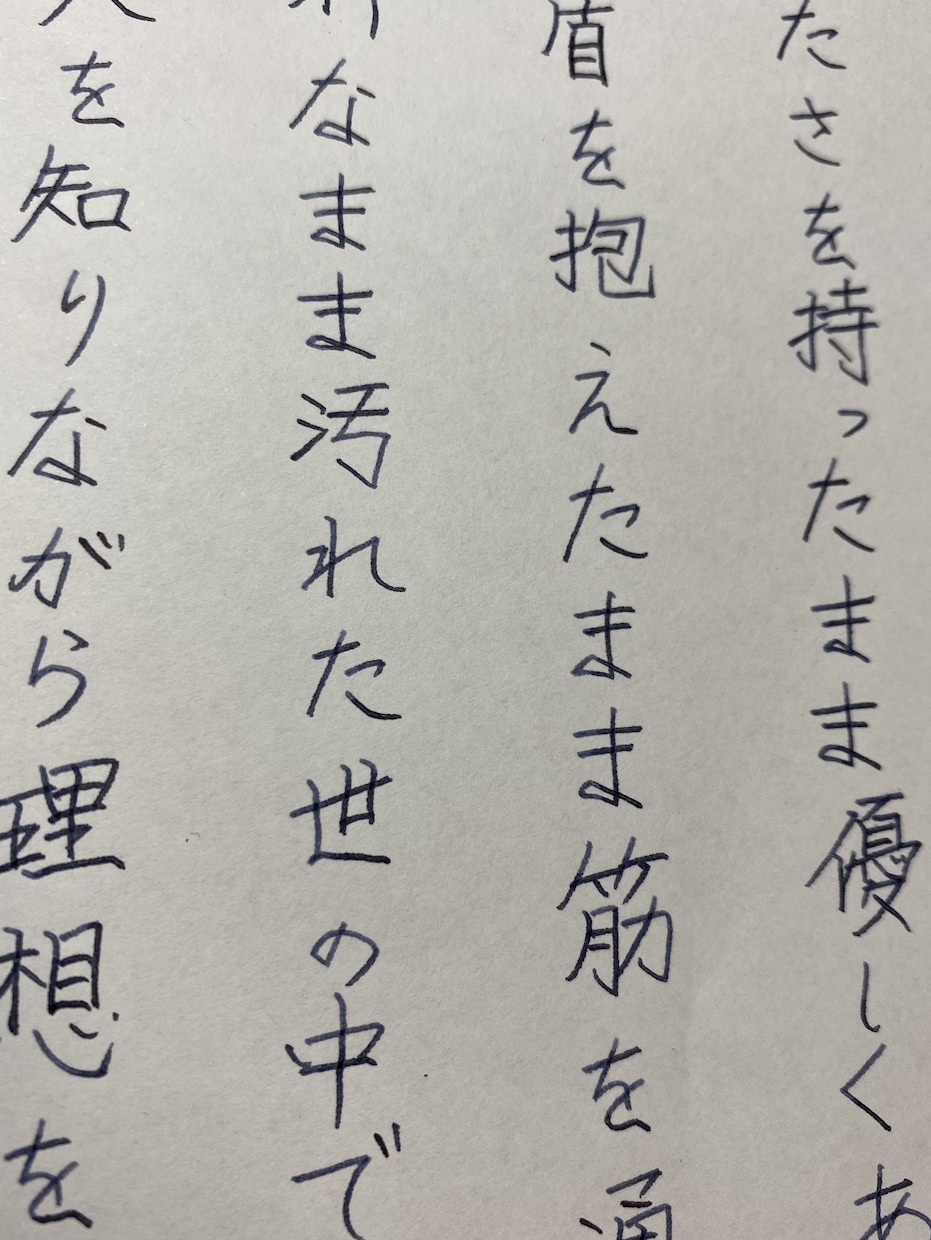 たさを持ったまま優しくあ
盾を抱えたまま筋を通
なまま汚れた世の中で
を知りながら理想を